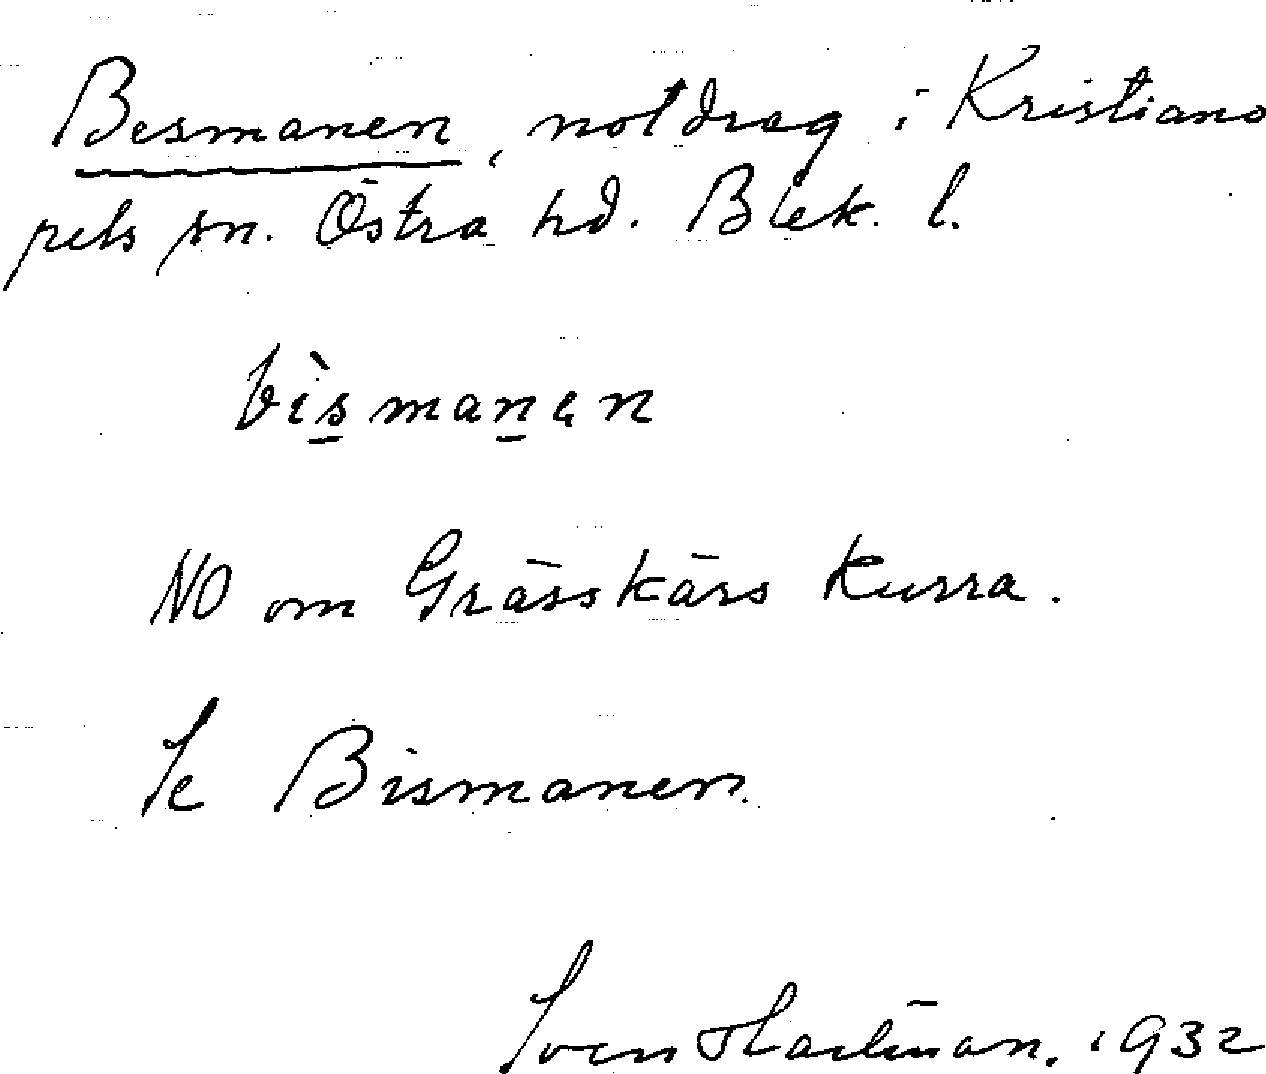 Besmanen, notdrag i Kristiano
pels sn. Östra hd. Blek. l.
bìsmanen
NO om Grässkärs Kurra.
Se Bismanen.
Sven Hartman. 1932